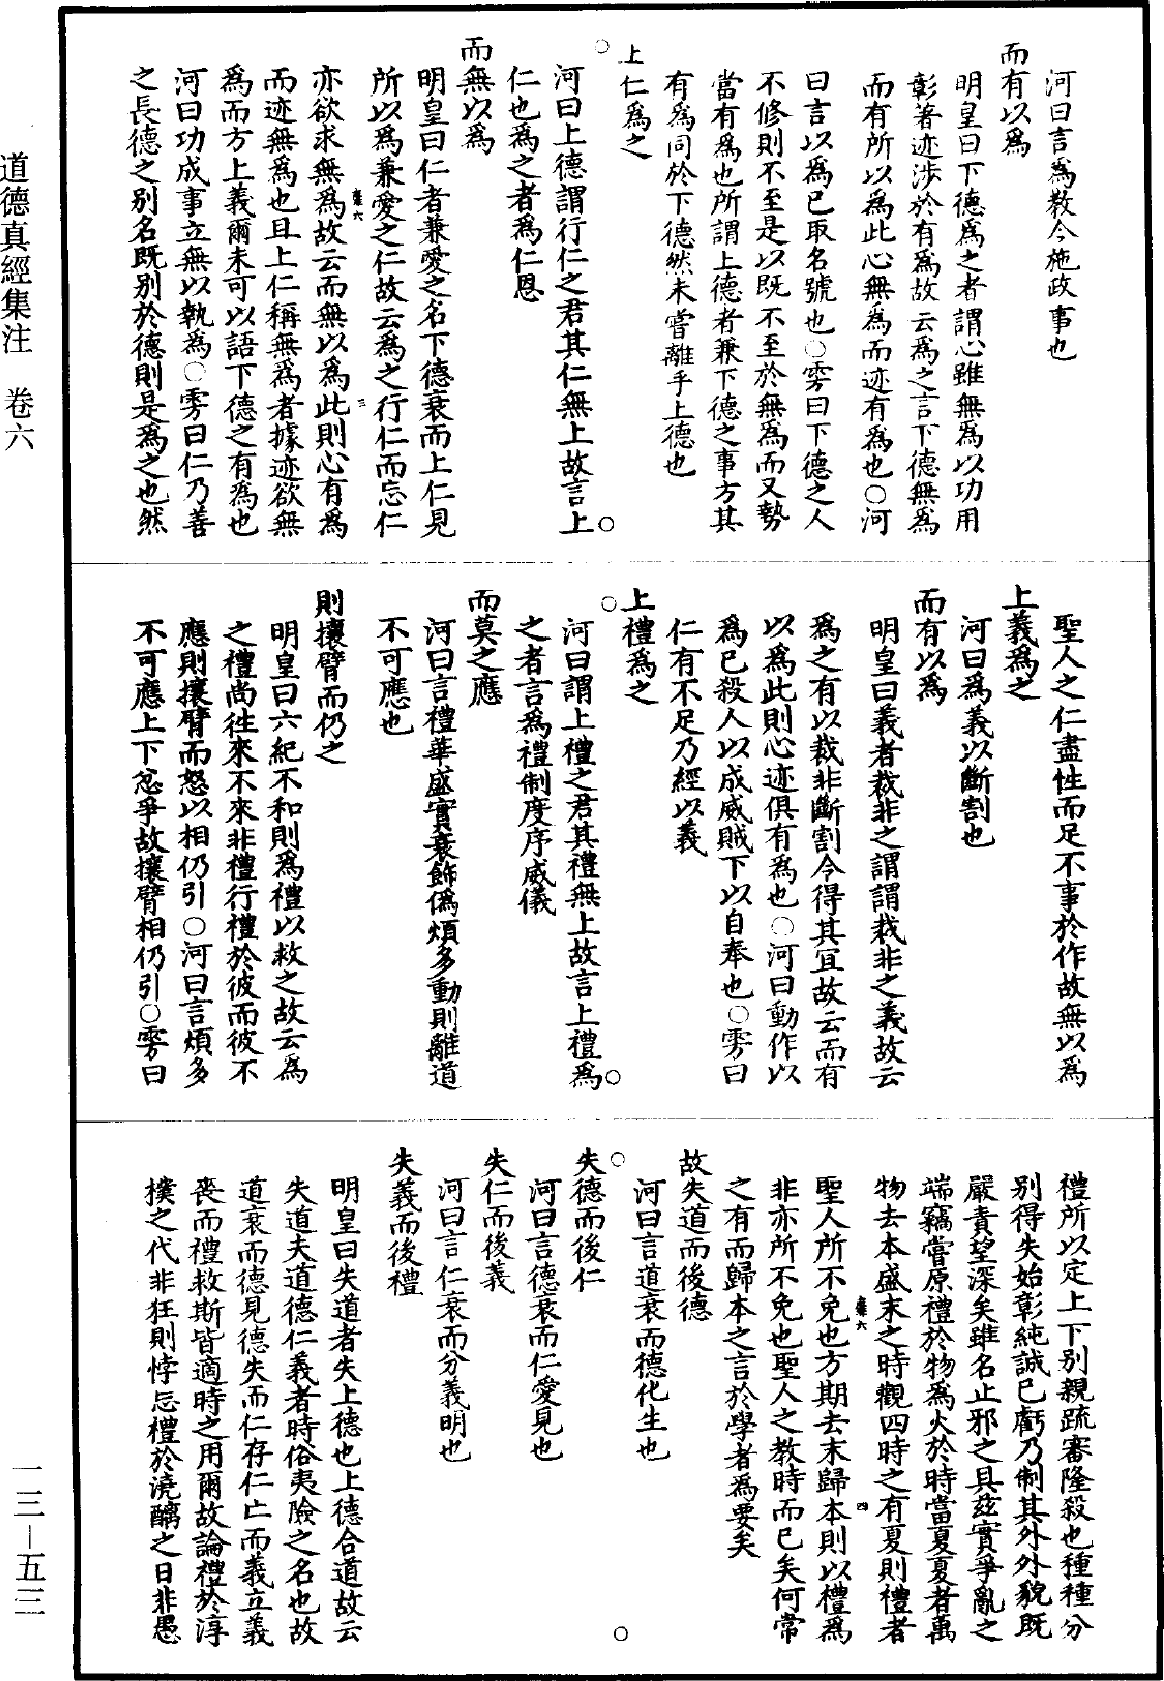 河曰言爲教令施政事也
而有以爲
明皇曰下德爲之者謂心雖無爲以功用
彰著迹涉於有爲故云爲之言下德無爲
而有所以爲此心無爲而迹有爲也○河
曰言以爲已取名號也○雱曰下德之人
不修則不至是以既不至於無爲而又勢
當有爲也所謂上德者兼下德之事方其
有爲同於下德然未嘗離乎上德也
上仁爲之
○河曰上德謂行仁之君其仁無上故言上○
仁也爲之者爲仁恩
而無以爲
明皇曰仁者兼愛之名下德衰而上仁見
所以爲兼愛之仁故云爲之行仁而忘仁
亦欲求無爲故云而無以爲此則心有爲
而迹無爲也且上仁稱無爲者據迹欲無
爲而方上義爾未可以語下德之有爲也
河曰功成事立無以執爲○雱曰仁乃善
之長德之別名既別於德則是爲之也然
聖人之仁盡性而足不事於作故無以爲
上義爲之
河曰爲義以斷割也
而有以爲
明皇曰義者裁非之謂謂裁非之義故云
爲之有以裁非斷割令得其宜故云而有
以爲此則心迹俱有爲也○河曰動作以
爲已殺人以成威賊下以自奉也○雱曰
仁有不足乃經以義
上禮爲之
○河曰謂上禮之君其禮無上故言上禮爲○
之者言爲禮制度序威儀
而莫之應
河曰言禮華盛實衰飾僞煩多動則離道
不可應也
則攘臂而仍之
明皇曰六紀不和則爲禮以救之故云爲
之禮尚往來不來非禮行禮於彼而彼不
應則攘臂而怒以相仍引○河曰言煩多
不可應上下忿爭故攘臂相仍引○雱曰
禮所以定上下別親疏審隆殺也種種分
別得失始彰純誠已虧乃制其外外貌既
嚴責望深矣雖名止邪之具茲實爭亂之
端竊嘗原禮於物爲火於時當夏夏者萬
物去本盛末之時觀四時之有夏則禮者
聖人所不免也方期去末歸本則以禮爲
非亦所不免也聖人之教時而已矣何常
之有而歸本之言於學者爲要矣
故失道而後德
河曰言道衰而德化生也
○失德而後仁○
河曰言德衰而仁愛見也
失仁而後義
河曰言仁衰而分義明也
失義而後禮
明皇曰失道者失上德也上德合道故云
失道夫道德仁義者時俗夷險之名也故
道衰而德見德失而仁存仁亡而義立義
喪而禮救斯皆適時之用爾故論禮於淳
樸之代非狂則悖忘禮於澆醨之日非愚
道德真經集注　卷六
一三—五三